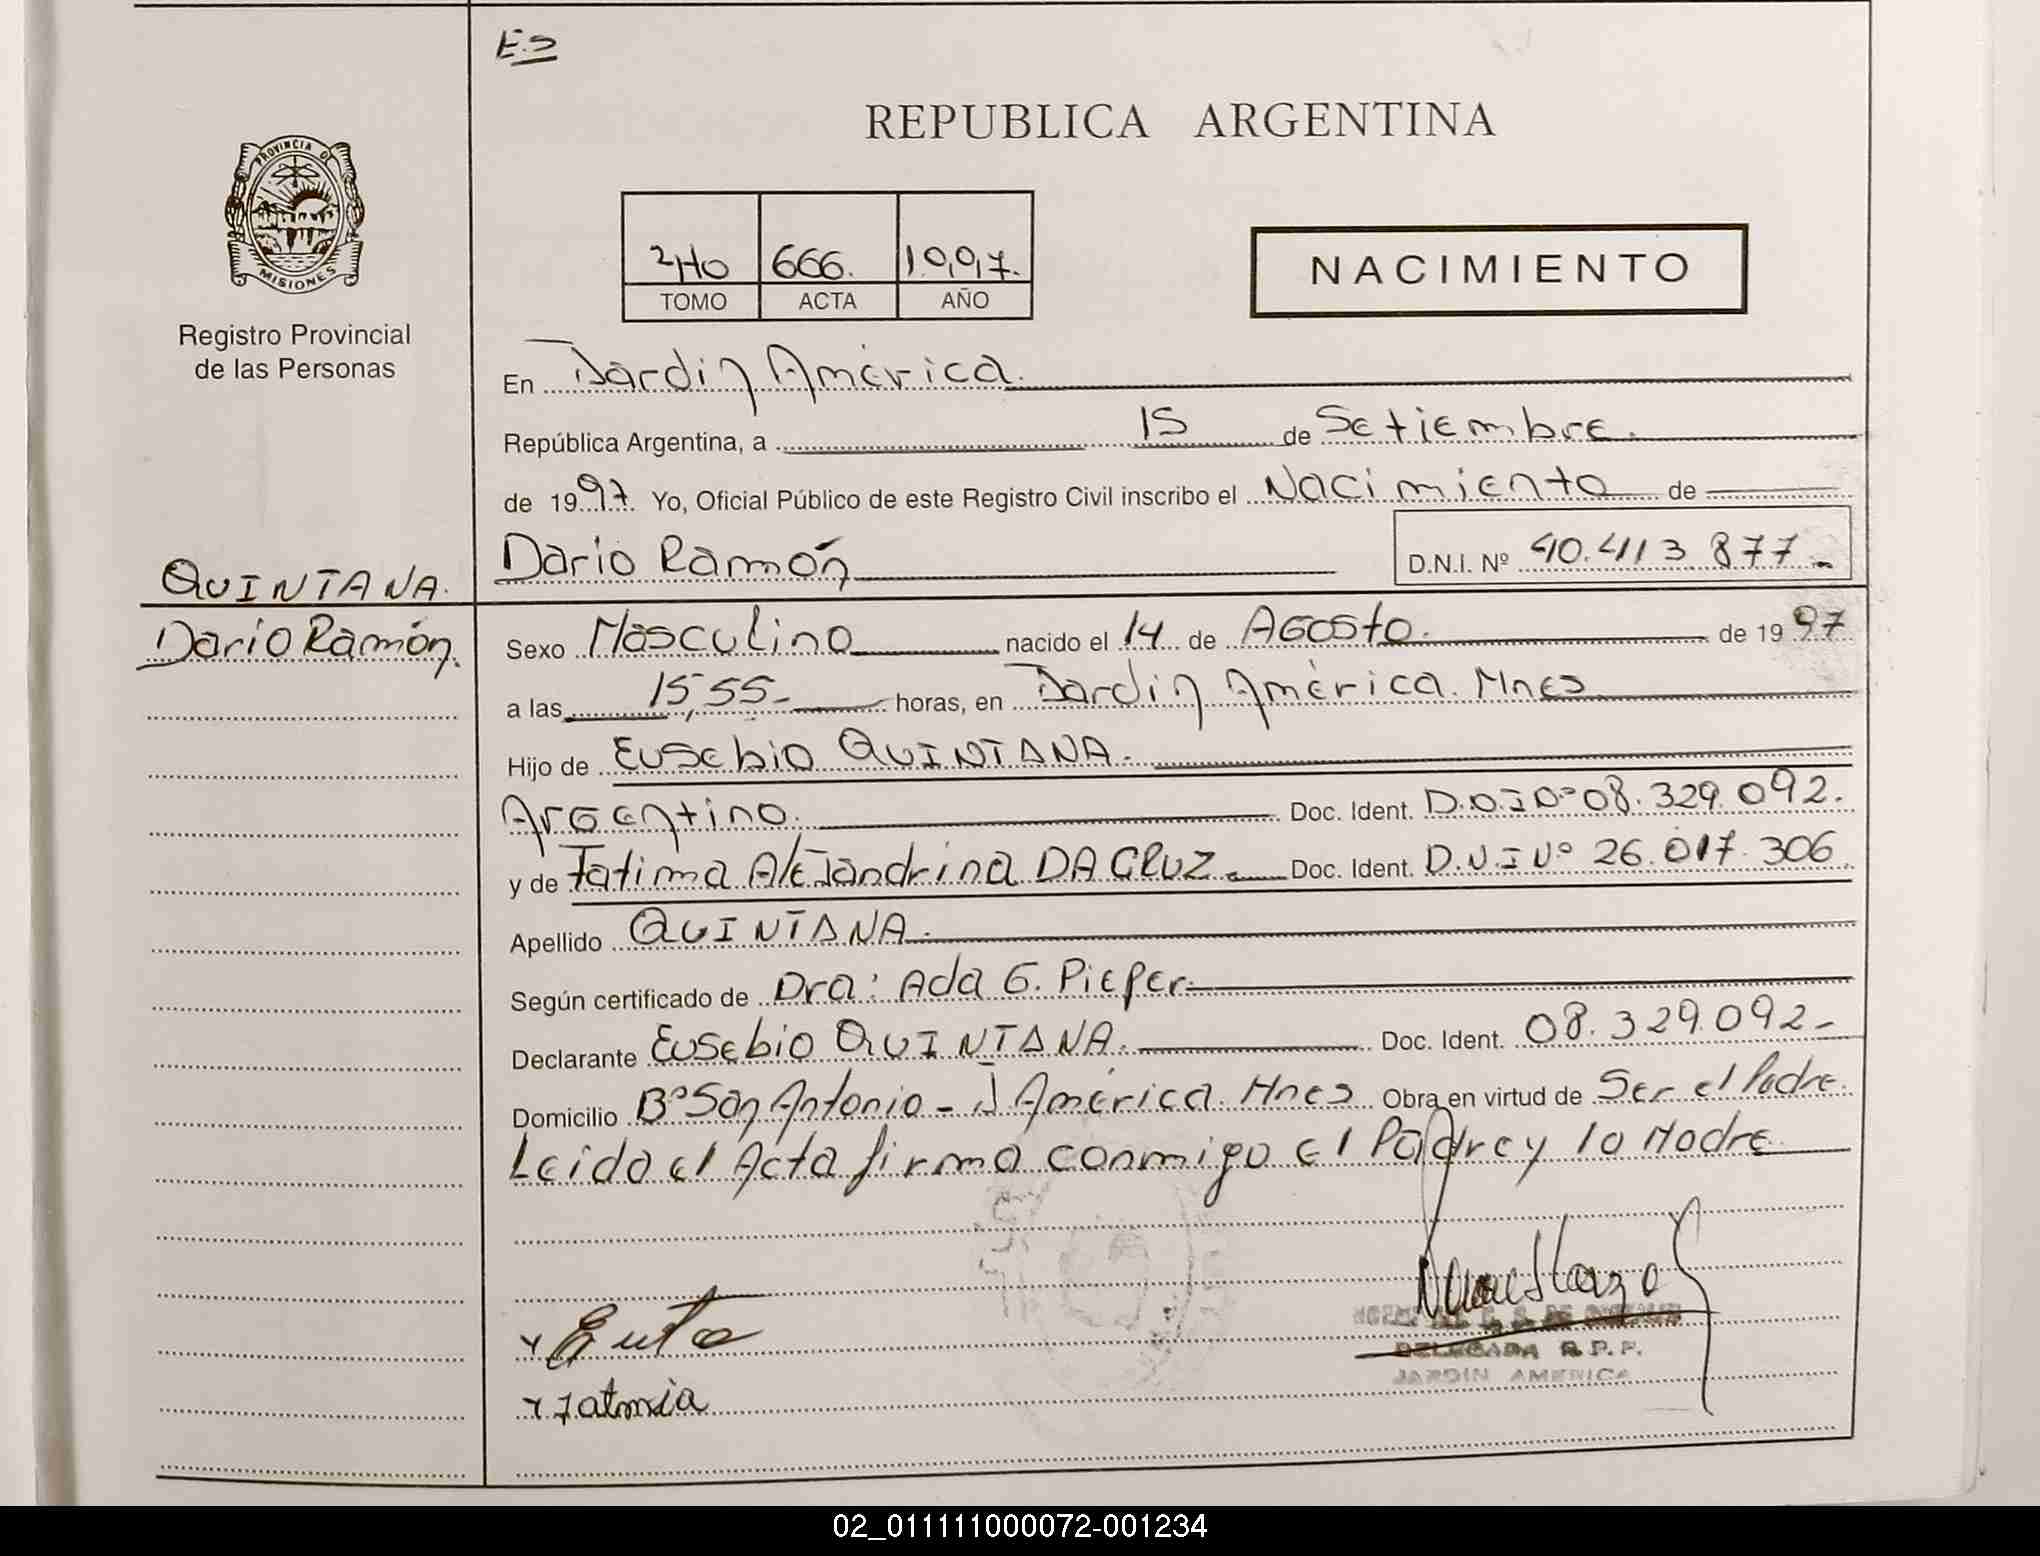 E.S
REPUBLICA ARGENTINA
PROVINCIA DE
MISIONES
2Ho 666. 1997.
TOMO ACTA AÑO
NACIMIENTO
Registro Provincial
de las Personas
En Jardin América.
República Argentina, a 15 de Setiembre.
de 1997. Yo, Oficial Público de este Registro Civil inscribo el Nacimiento de
QUINTANA.
Dario Ramón.
Dario Ramón D.N.I. Nº 40.413.877.-
Sexo Masculino nacido el 14 de Agosto. de 1997
a las 15,55- horas, en Jardin América. Mnes
Hijo de Eusebio QUINTANA.
Argentino. Doc. Ident. D.N.I Nº 08.329.092.
y de Fatima Alejandrina DA CRUZ. Doc. Ident. D.N.I Nº 26.017.306
Apellido QUINTANA.
Según certificado de Dra: Ada G. Pieper.
Declarante Eusebio QUINTANA. Doc. Ident. 08.329.092-
Domicilio Bº San Antonio - J América. Mnes Obra en virtud de Ser el Padre.
Leida el Acta firma conmigo el Padre y la Madre
DELEGADA R.P.P.
JARDIN AMERICA
02_011111000072-001234